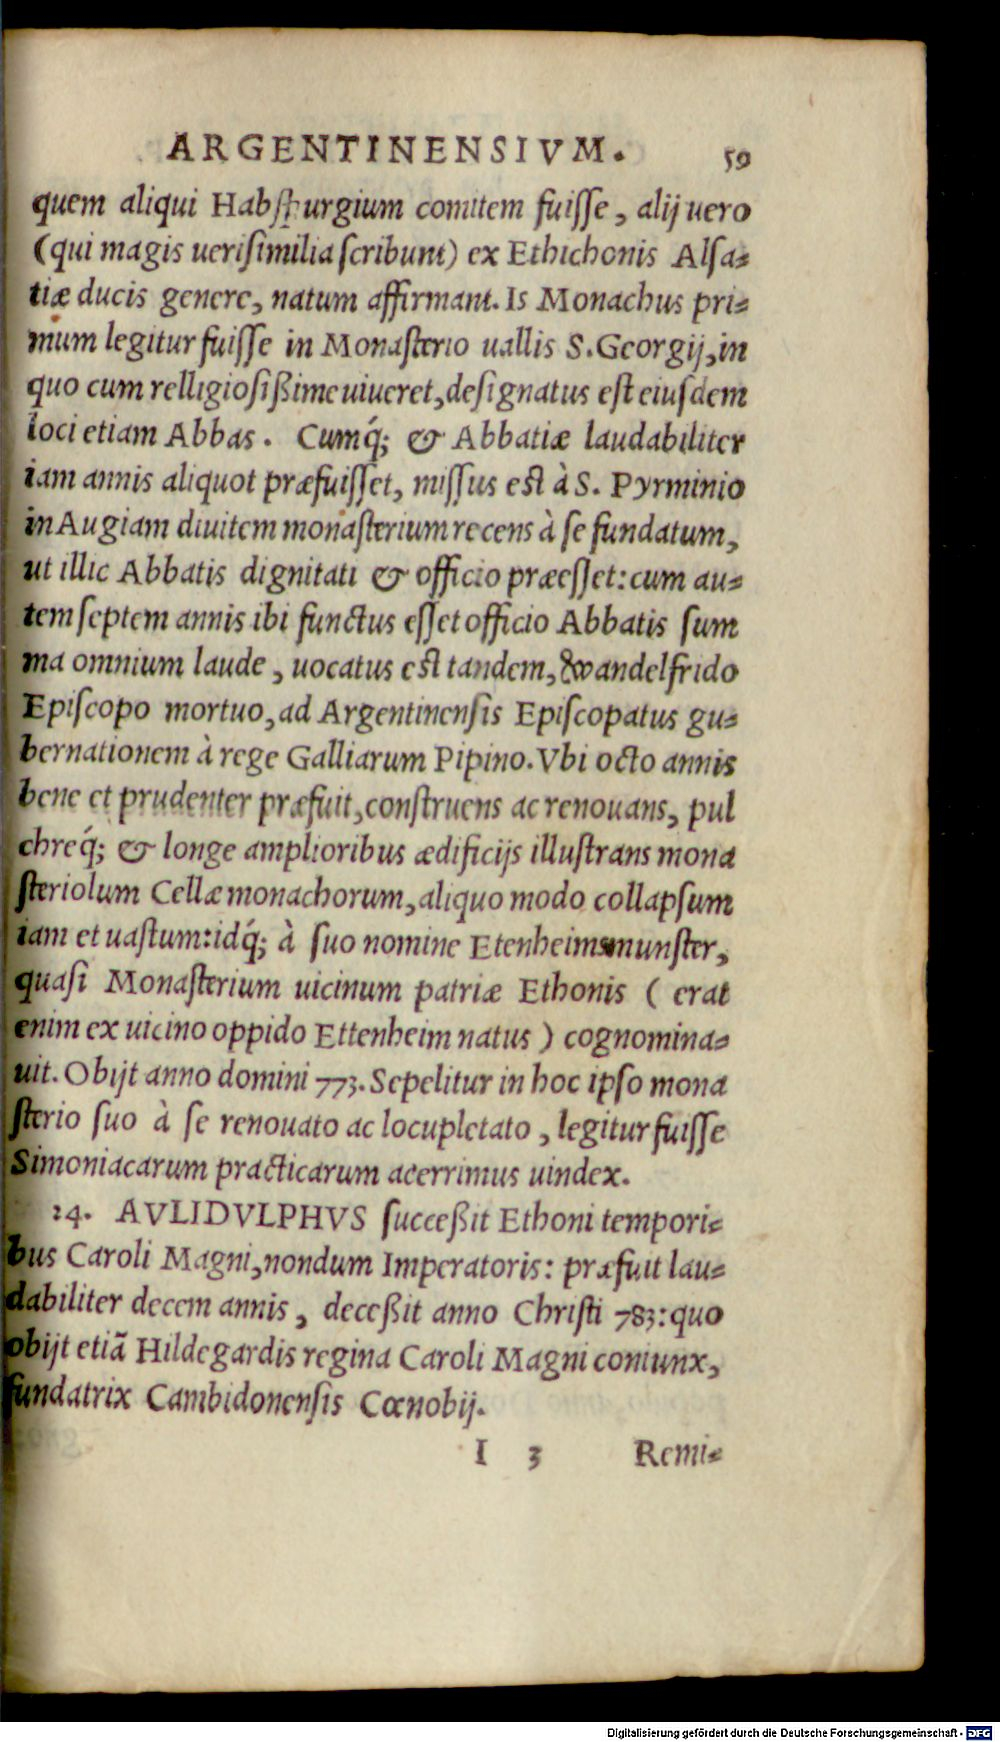 ARGENTINENSIVM. 59
quem aliqui Habſpurgium comitem fuiſſe, alij uero
(qui magis ueriſimilia ſcribunt) ex Ethichonis Alſa-
tiæ ducis genere, natum affirmant. Is Monachus pri-
mum legitur fuiſſe in Monaſterio uallis S. Georgij, in
quo cum relligioſißime uiueret, deſignatus eſt eiuſdem
loci etiam Abbas. Cumq́; & Abbatiæ laudabiliter
iam annis aliquot præfuiſſet, miſſus eſt à S. Pyrminio
in Augiam diuitem monaſterium recens à ſe fundatum,
ut illic Abbatis dignitati & officio præeſſet: cum au-
tem ſeptem annis ibi functus eſſet officio Abbatis ſum
ma omnium laude, uocatus eſt tandem, &wandelfrido
Epiſcopo mortuo, ad Argentinenſis Epiſcopatus gu-
bernationem à rege Galliarum Pipino. Vbi octo annis
bene et prudenter præfuit, conſtruens ac renouans, pul
chreq́; & longe amplioribus ædificijs illuſtrans mona
ſteriolum Cellæ monachorum, aliquo modo collapſum
iam et uaſtum: idq́; à ſuo nomine Etenheimsmunſter,
quaſi Monaſterium uicinum patriæ Ethonis ( erat
enim ex uicino oppido Ettenheim natus ) cognomina-
uit. Obijt anno domini 773. Sepelitur in hoc ipſo mona
ſterio ſuo à ſe renouato ac locupletato, legitur fuiſſe
Simoniacarum practicarum acerrimus uindex.
24. AVLIDVLPHVS ſucceßit Ethoni tempori-
bus Caroli Magni, nondum Imperatoris: præfuit lau-
dabiliter decem annis, deceßit anno Chriſti 783: quo
obijt etiã Hildegardis regina Caroli Magni coniunx,
fundatrix Cambidonenſis Cœnobij.
I 3 Remi-
Digitalisierung gefördert durch die Deutsche Forschungsgemeinschaft - DFG